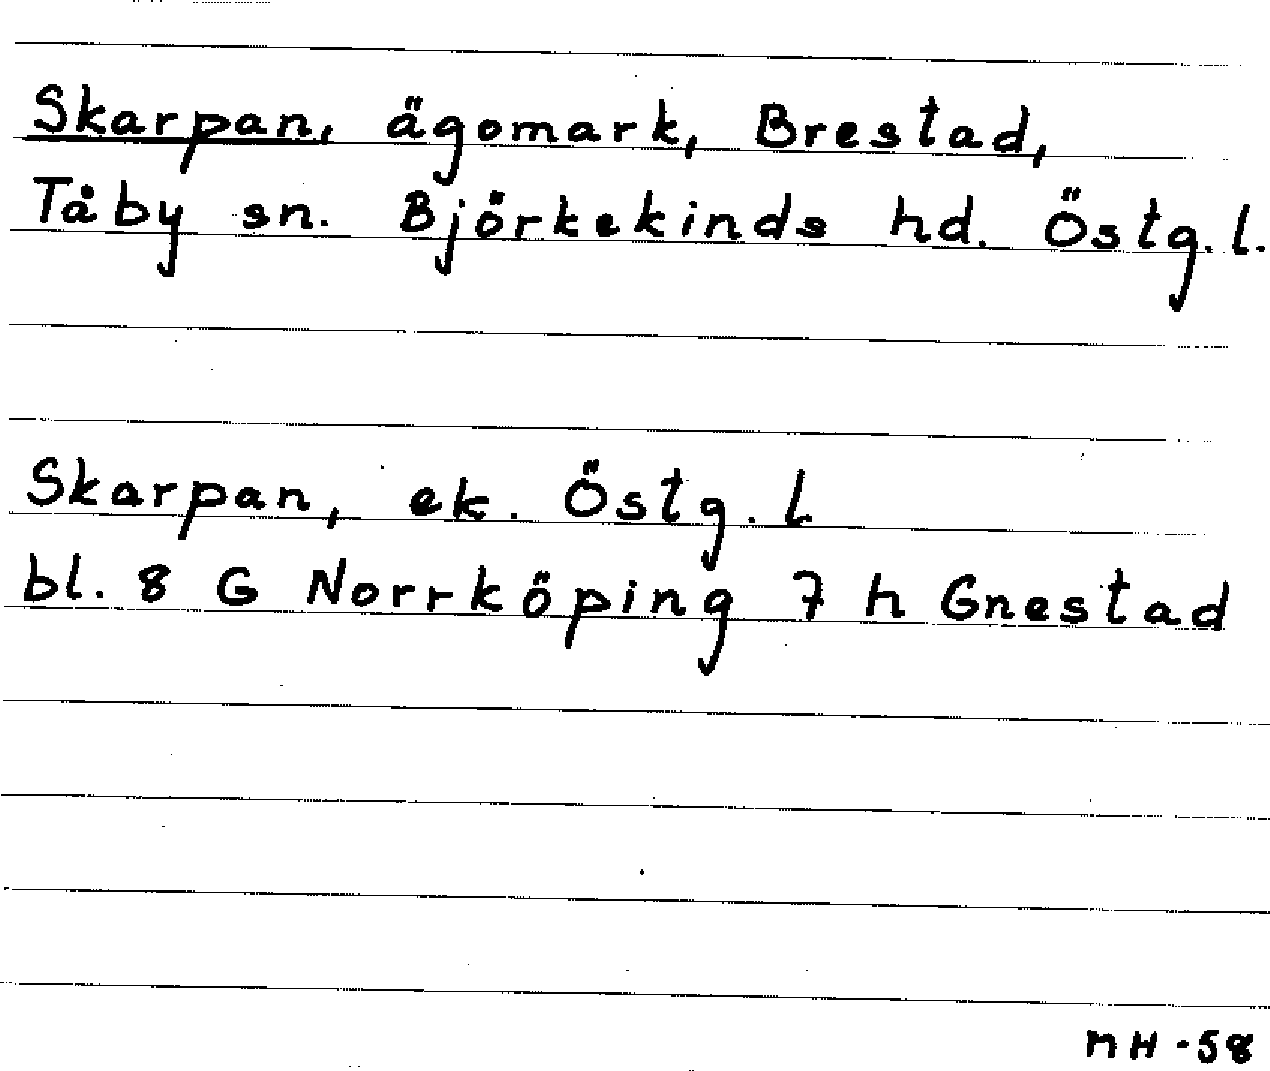 Skarpan, ägomark, Brestad,
Tåby sn. Björkekinds hd. Östg. l.
Skarpan, ek. Östg. l
bl. 8 G Norrköping 7 h Gnestad
MH-58